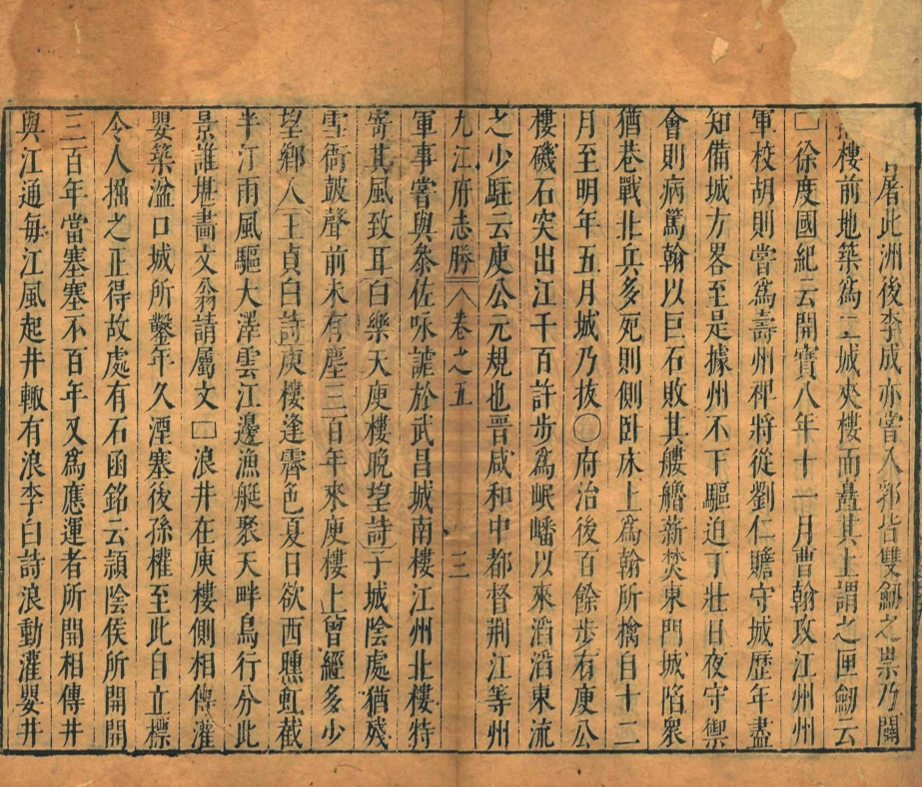 屠此洲後李成亦嘗入郭皆雙劒之祟乃闢
樓前地築爲二城夾樓而矗其上謂之匣劒云
□徐度國紀云開寶八年十一月曹翰攻江州州
軍校胡則嘗爲壽州裨將從劉仁贍守城歷年盡
知備城方畧至是據州不下驅迫丁壯日夜守禦
會則病篤翰以巨石敗其艛艪薪焚東門城陷衆
猶巷戰北兵多死則側卧床上爲翰所擒自十二
月至明年五月城乃拔〇府治後百餘步有庾公
樓磯石突出江千百許步爲岷嶓以來滔滔東流
之少駐云庾公元規也晉咸和中都督荆江等州
九江府志勝 卷之五 三
軍事嘗與叅佐咏謔於武昌城南樓江州北樓特
寄其風致耳白樂天庾樓晩望詩子城陰處猶殘
雪衙鼓聲前未有塵三百年來庾樓上曾經多少
望鄉人王貞白詩庾樓逢霽色夏日欲西曛虹截
半汀雨風驅大澤雲江邊漁艇聚天畔鳥行分此
景誰堪畵文翁請屬文□浪井在庾樓側相傳灌
嬰築湓口城所鑿年久湮塞後孫權至此自立標
令人掘之正得故處有石函銘云頴陰侯所開開
三百年當塞塞不百年又爲應運者所開相傳井
與江通毎江風起井輙有浪李白詩浪動灌嬰井